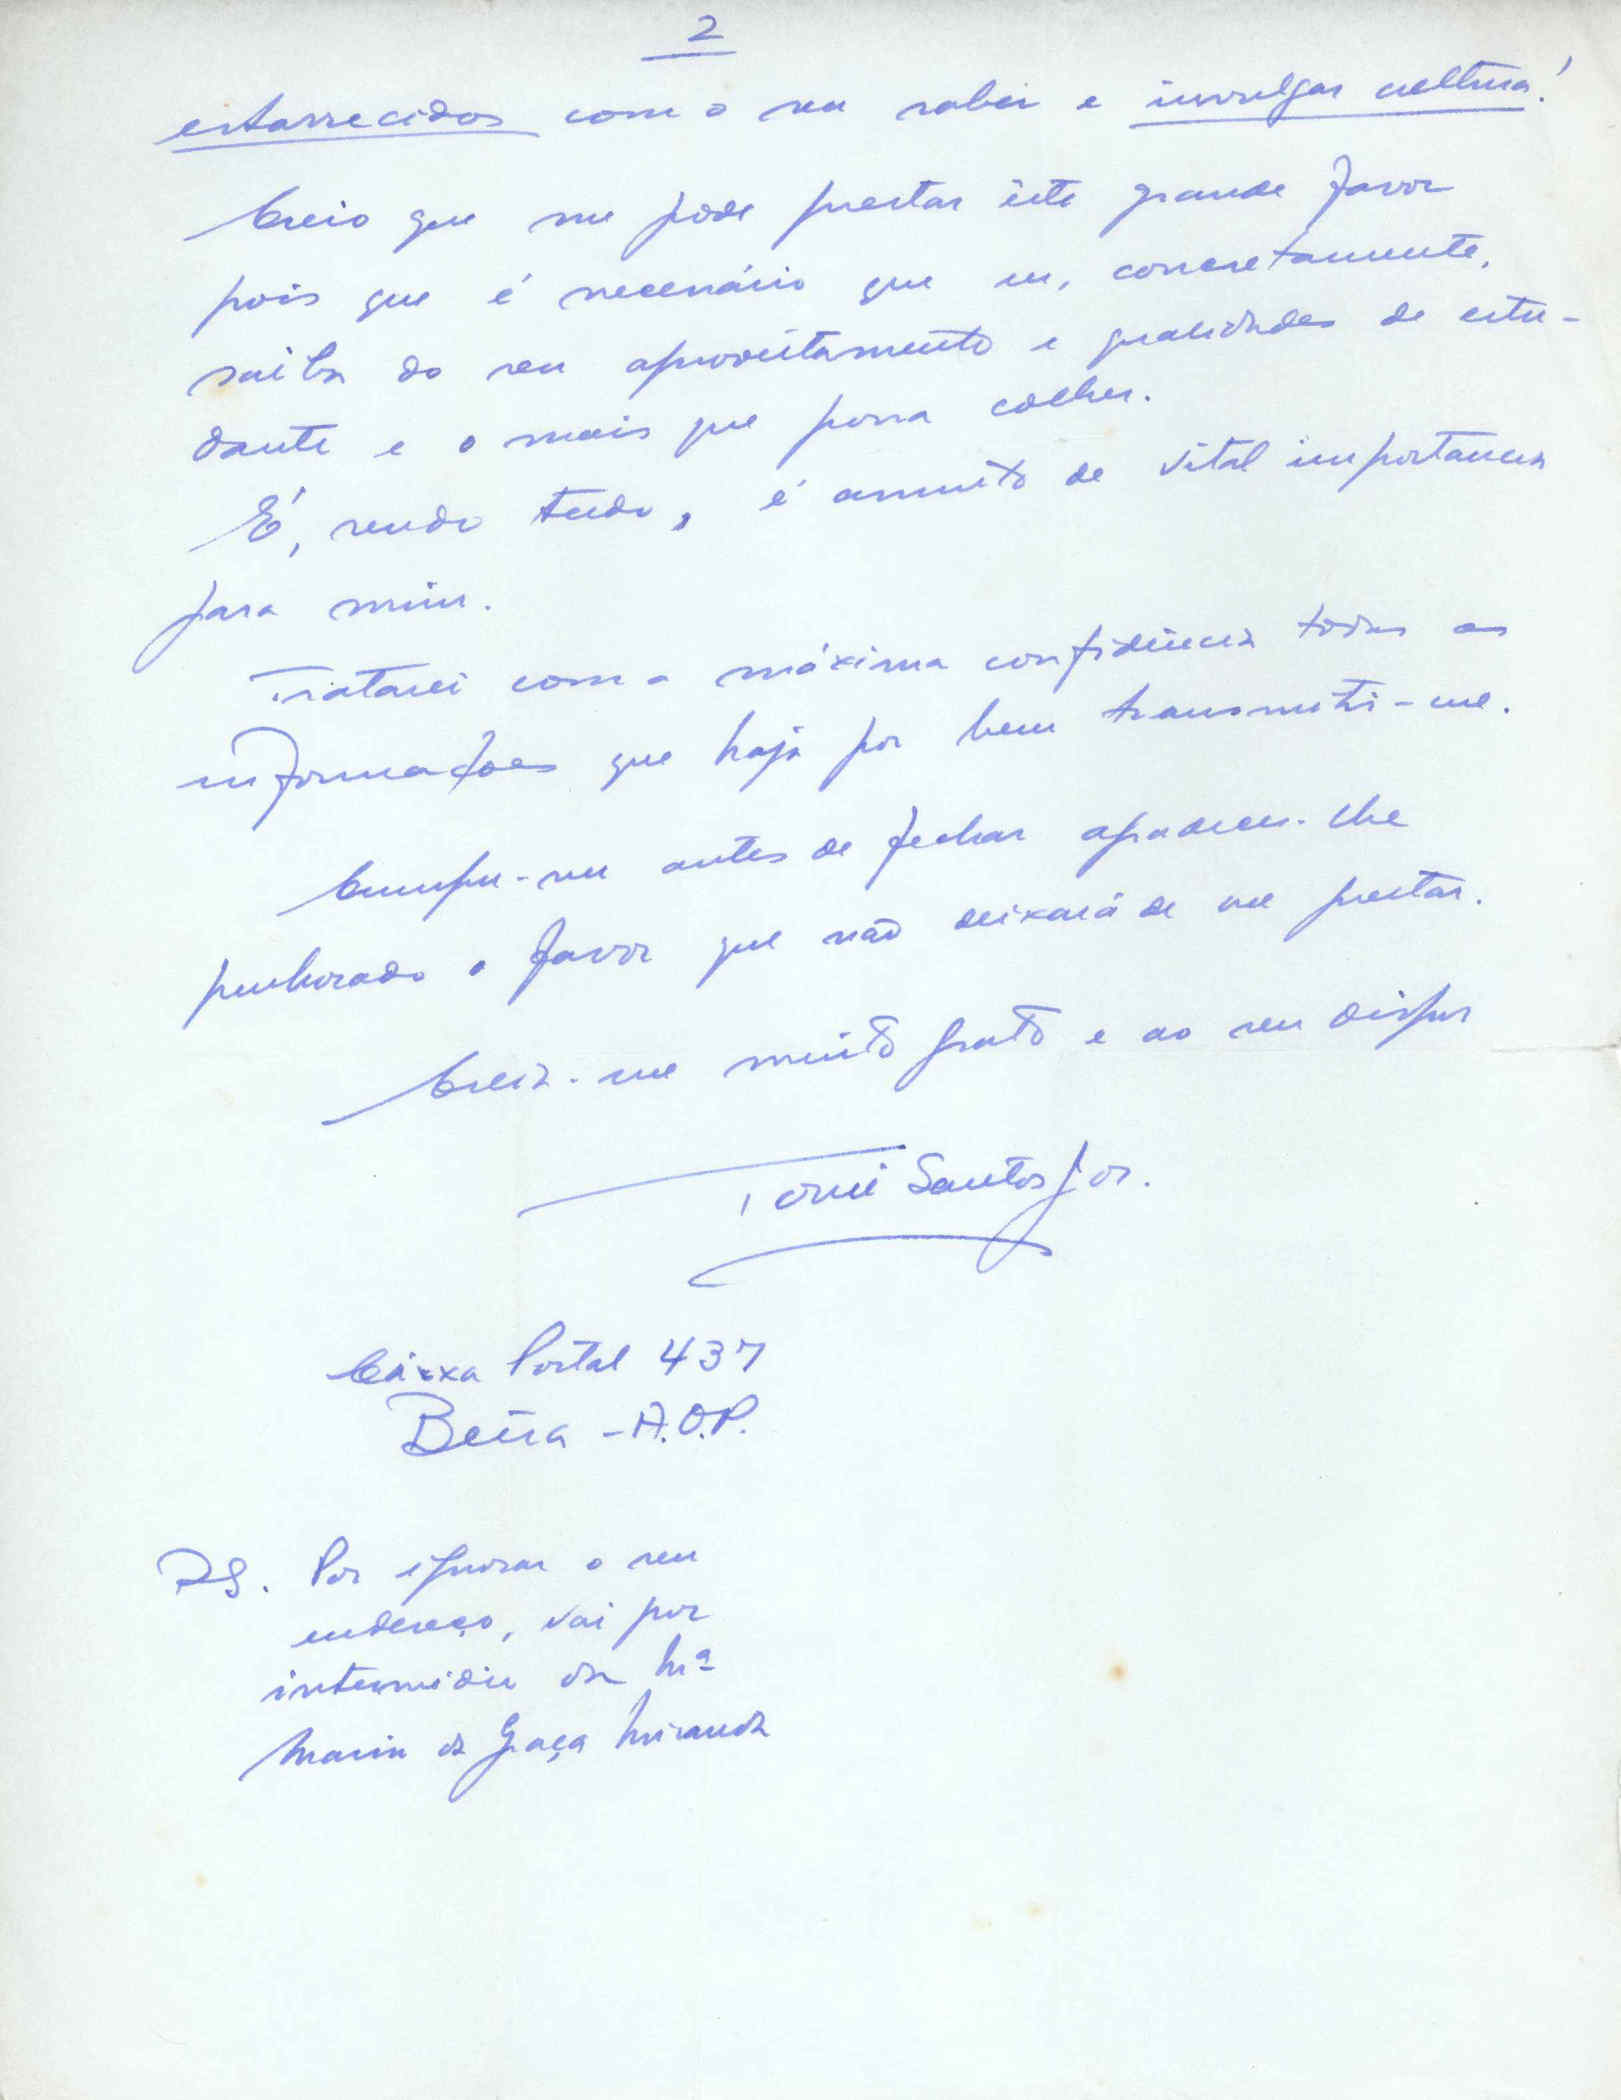 2
estarrecidos com o seu saber e invulgar cultura!
Creio que me pode prestar êste grande favor
pois que é necessário que eu, concretamente,
saiba do seu aproveitamento e qualidades de estu-
dante e o mais que possa colher.
É, sendo tudo, é assunto de vital importancia
para mim.
Tratarei com a máxima confidência todas as
informações que haja por bem transmitir-me.
Cumpre-me antes de fechar agradecer-lhe
penhorado o favor que não deixará de me prestar.
Creia-me muito grato e ao seu dispor
Tomé Santos Jor.
Caixa Postal 437
Beira - A.O.P.
PS. Por ignorar o seu
endereço, vai por
intermédio da
Maria da Graça Miranda